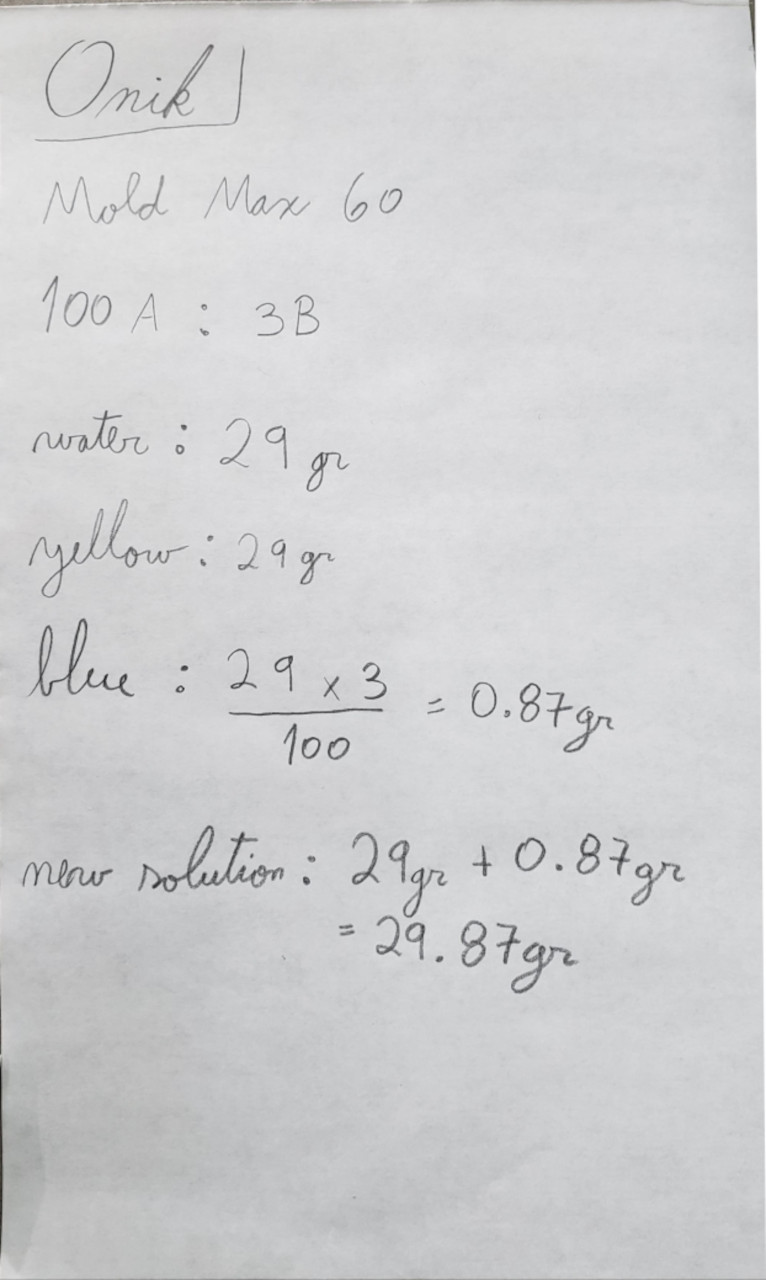 Onik
Mold Max 60
100 A : 3B
water : 29 gr
yellow : 29 gr
blue : 29 x 3 / 100 = 0.87gr
new solution : 29gr + 0.87gr
= 29.87gr